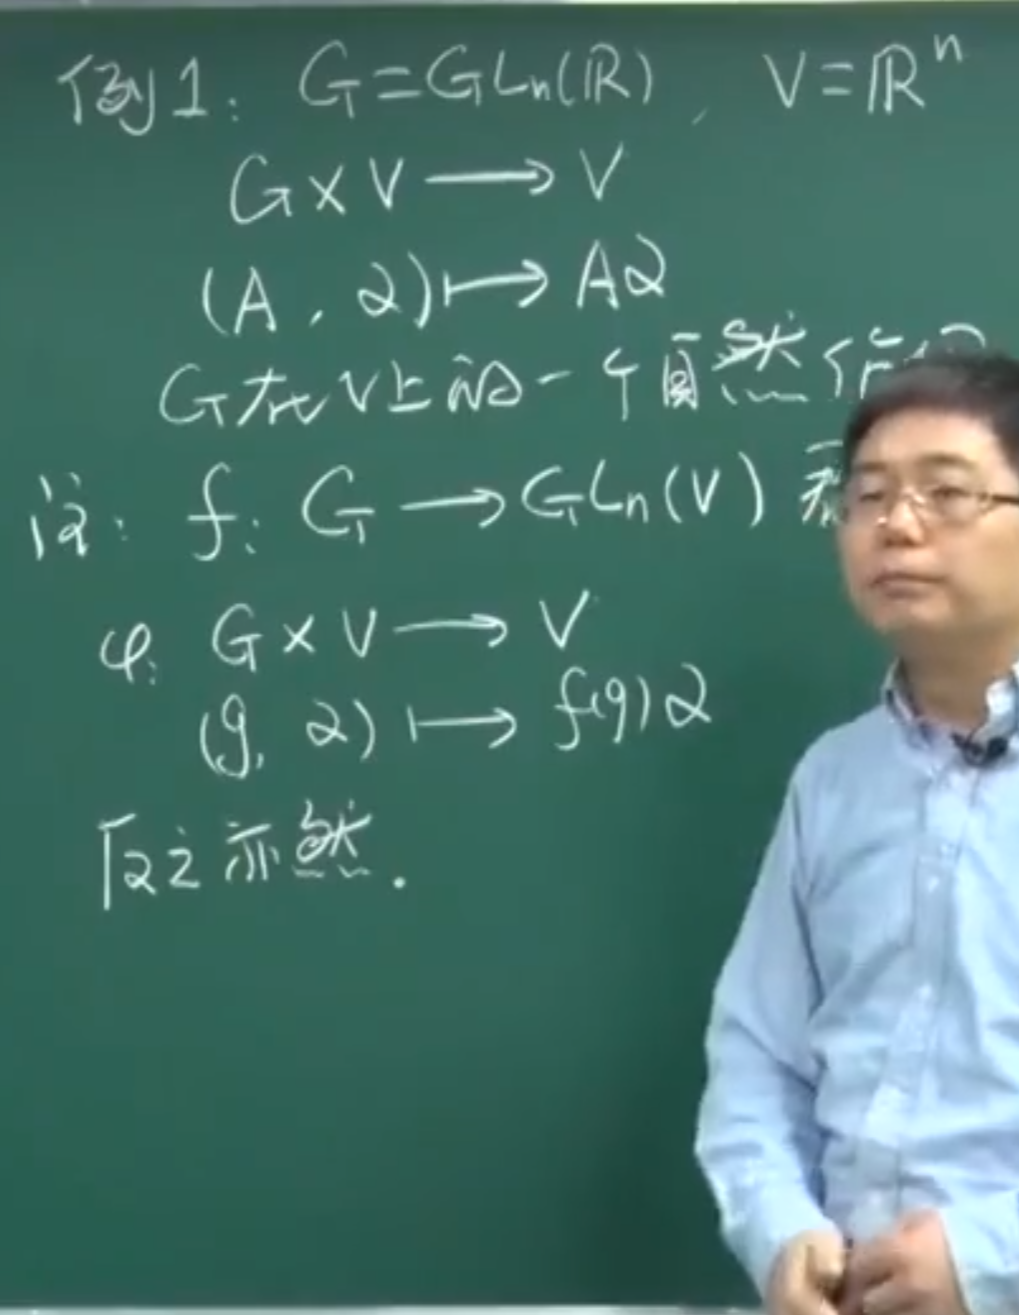 例1: G=GLn(R), V=R^n
G×V⟶V
(A, α)⟼Aα
G在V上的一个自然作
设: f: G⟶GLn(V)
φ: G×V⟶V
(g, α)⟼f(g)α
反之亦然.